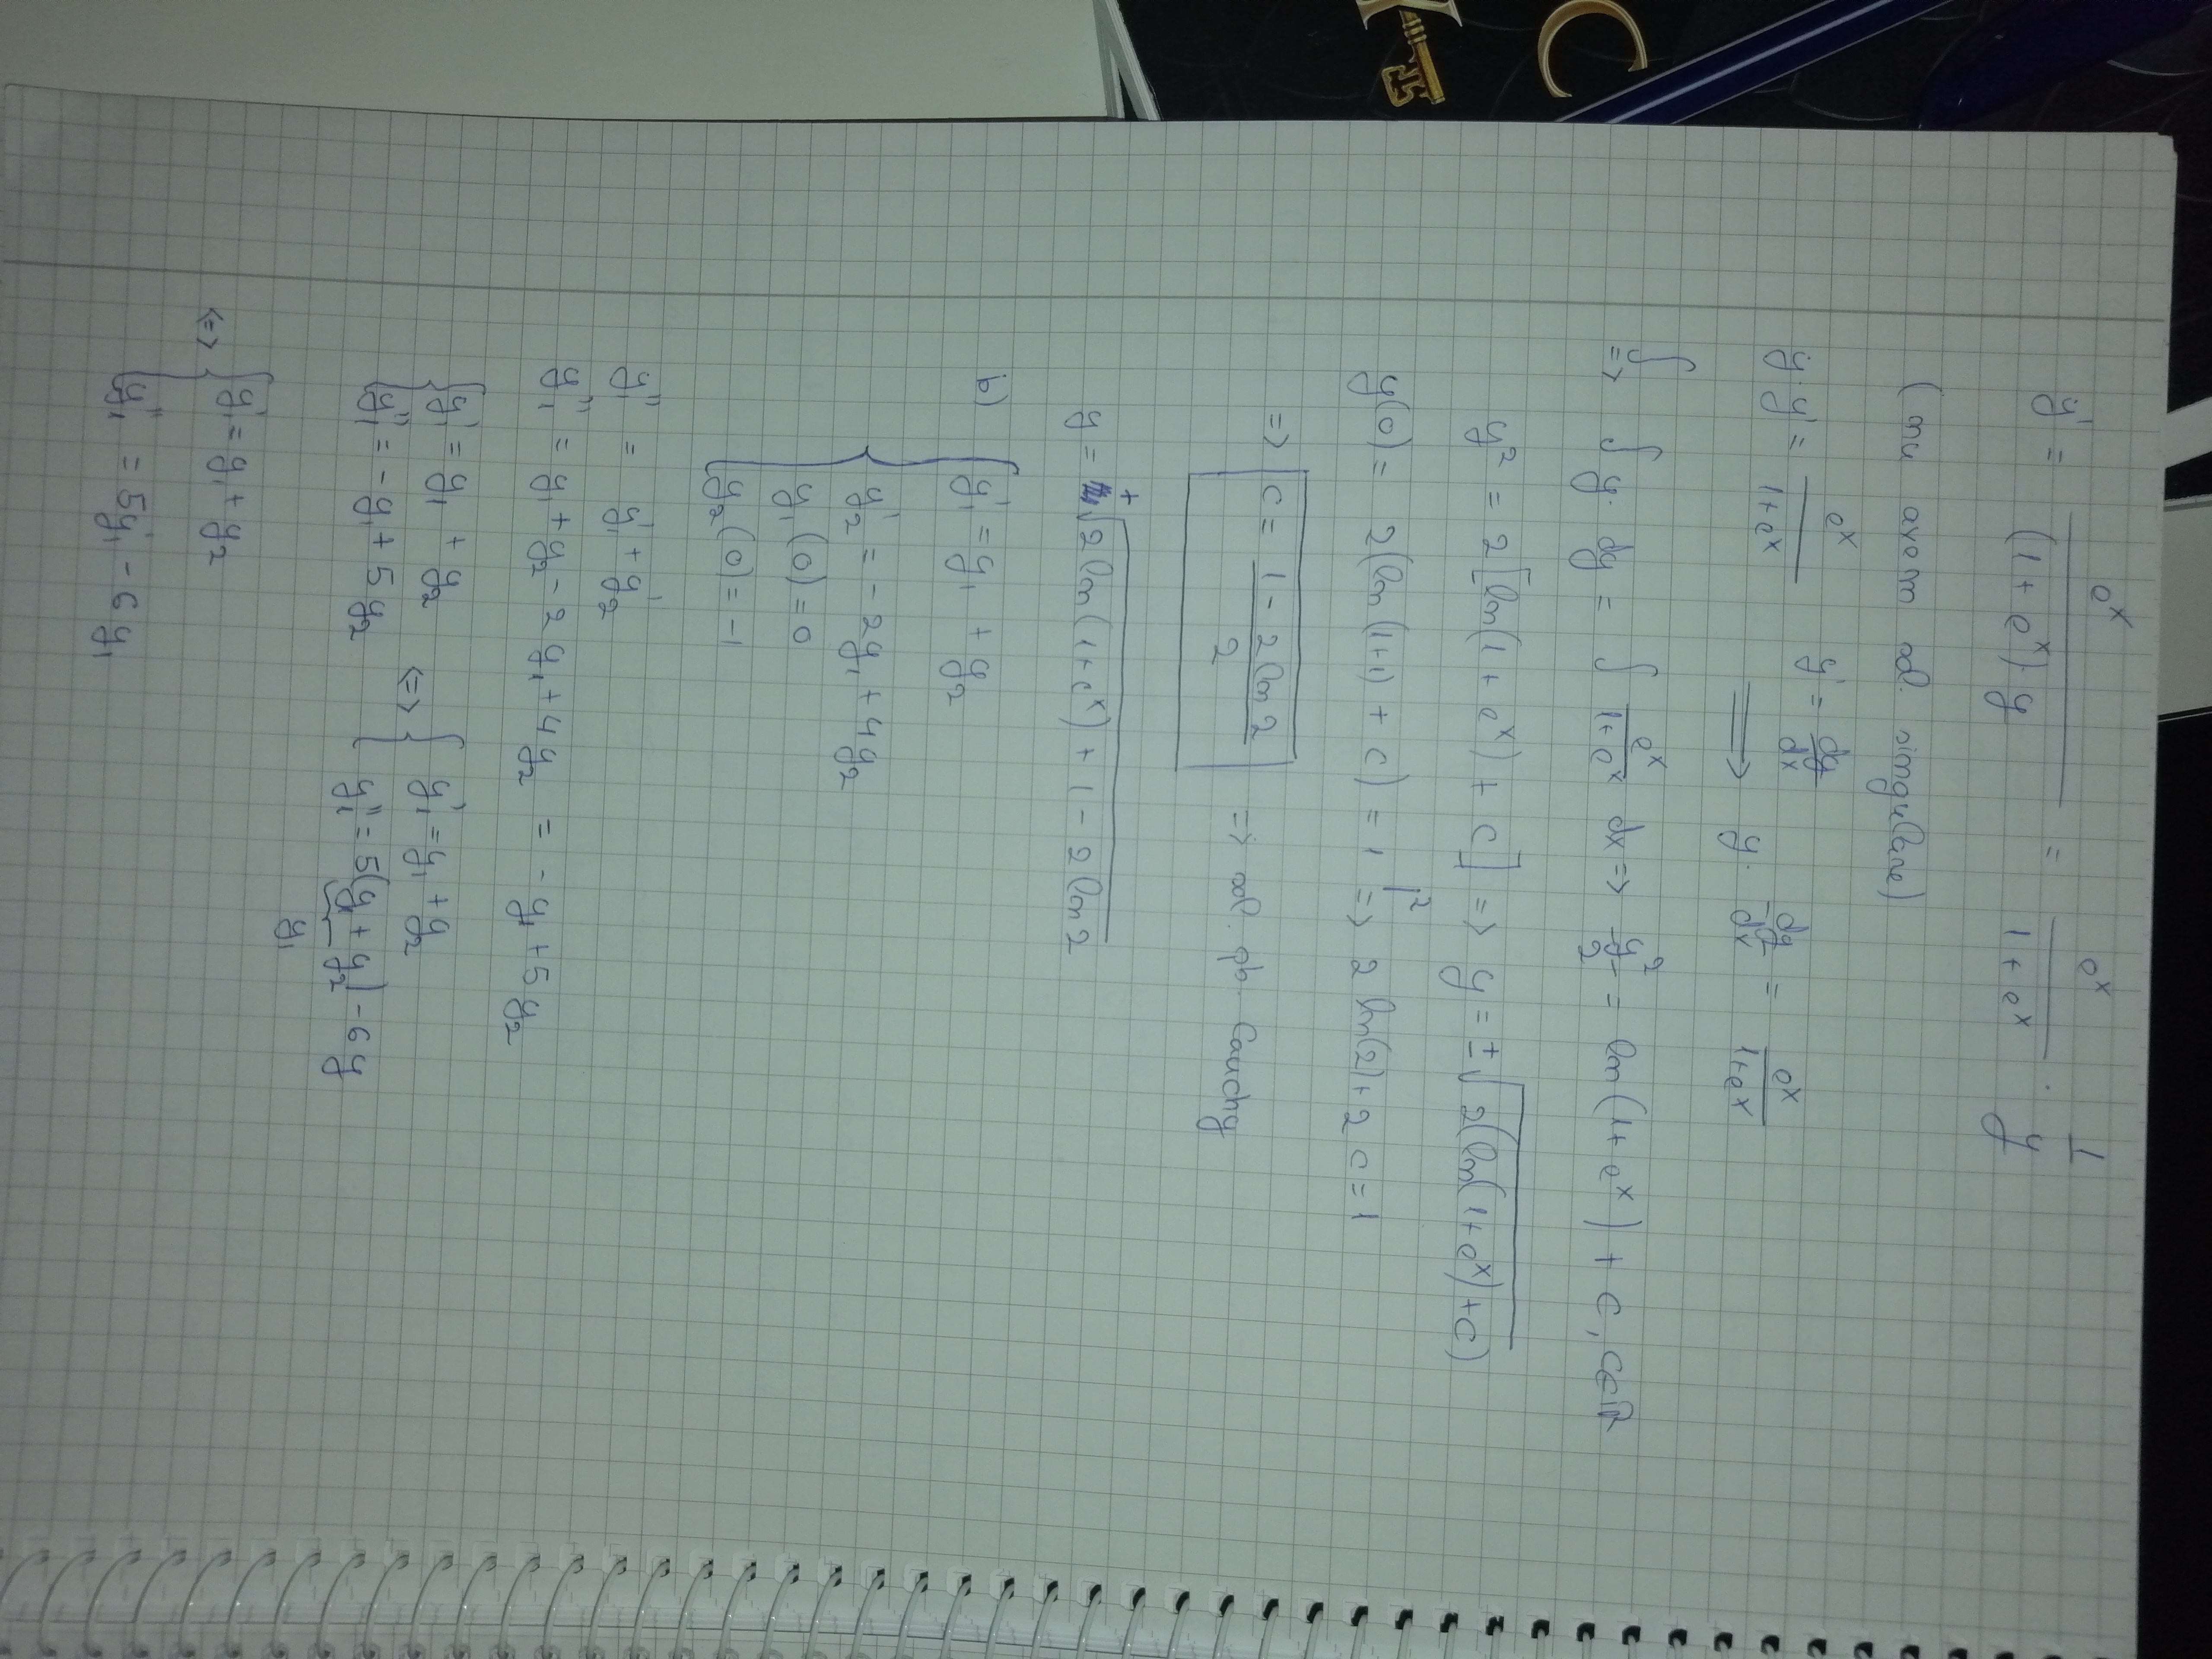 y' = e^x / ((1 + e^x) · y) = e^x / (1 + e^x) · 1/y
(nu avem sol. singulare)
y · y' = e^x / (1+e^x) y' = dy/dx => y · dy/dx = e^x / (1+e^x)
∫ => ∫ y · dy = ∫ e^x / (1+e^x) dx => y^2/2 = ln(1+e^x) + C, C∈ℝ
y^2 = 2[ln(1+e^x) + C] => y = ±√(2(ln(1+e^x)+C))
y(0) = 2(ln(1+1) + C) = 1 |^2 => 2 ln(2)+2 C = 1
=> C = (1 - 2 ln 2) / 2 => sol. pb. Cauchy
y = +√(2 ln(1+e^x) + 1 - 2 ln 2)
b) { y₁' = y₁ + y₂
y₂' = -2y₁ + 4y₂
y₁(0) = 0
y₂(0) = -1
y₁'' = y₁' + y₂'
y₁'' = y₁ + y₂ - 2y₁ + 4y₂ = -y₁ + 5y₂
{ y₁' = y₁ + y₂ <=> { y₁' = y₁ + y₂
y₁'' = -y₁ + 5y₂ y₁'' = 5(y₁ + y₂) - 6y
y₁
<=> { y₁' = y₁ + y₂
y₁'' = 5y₁' - 6y₁
C